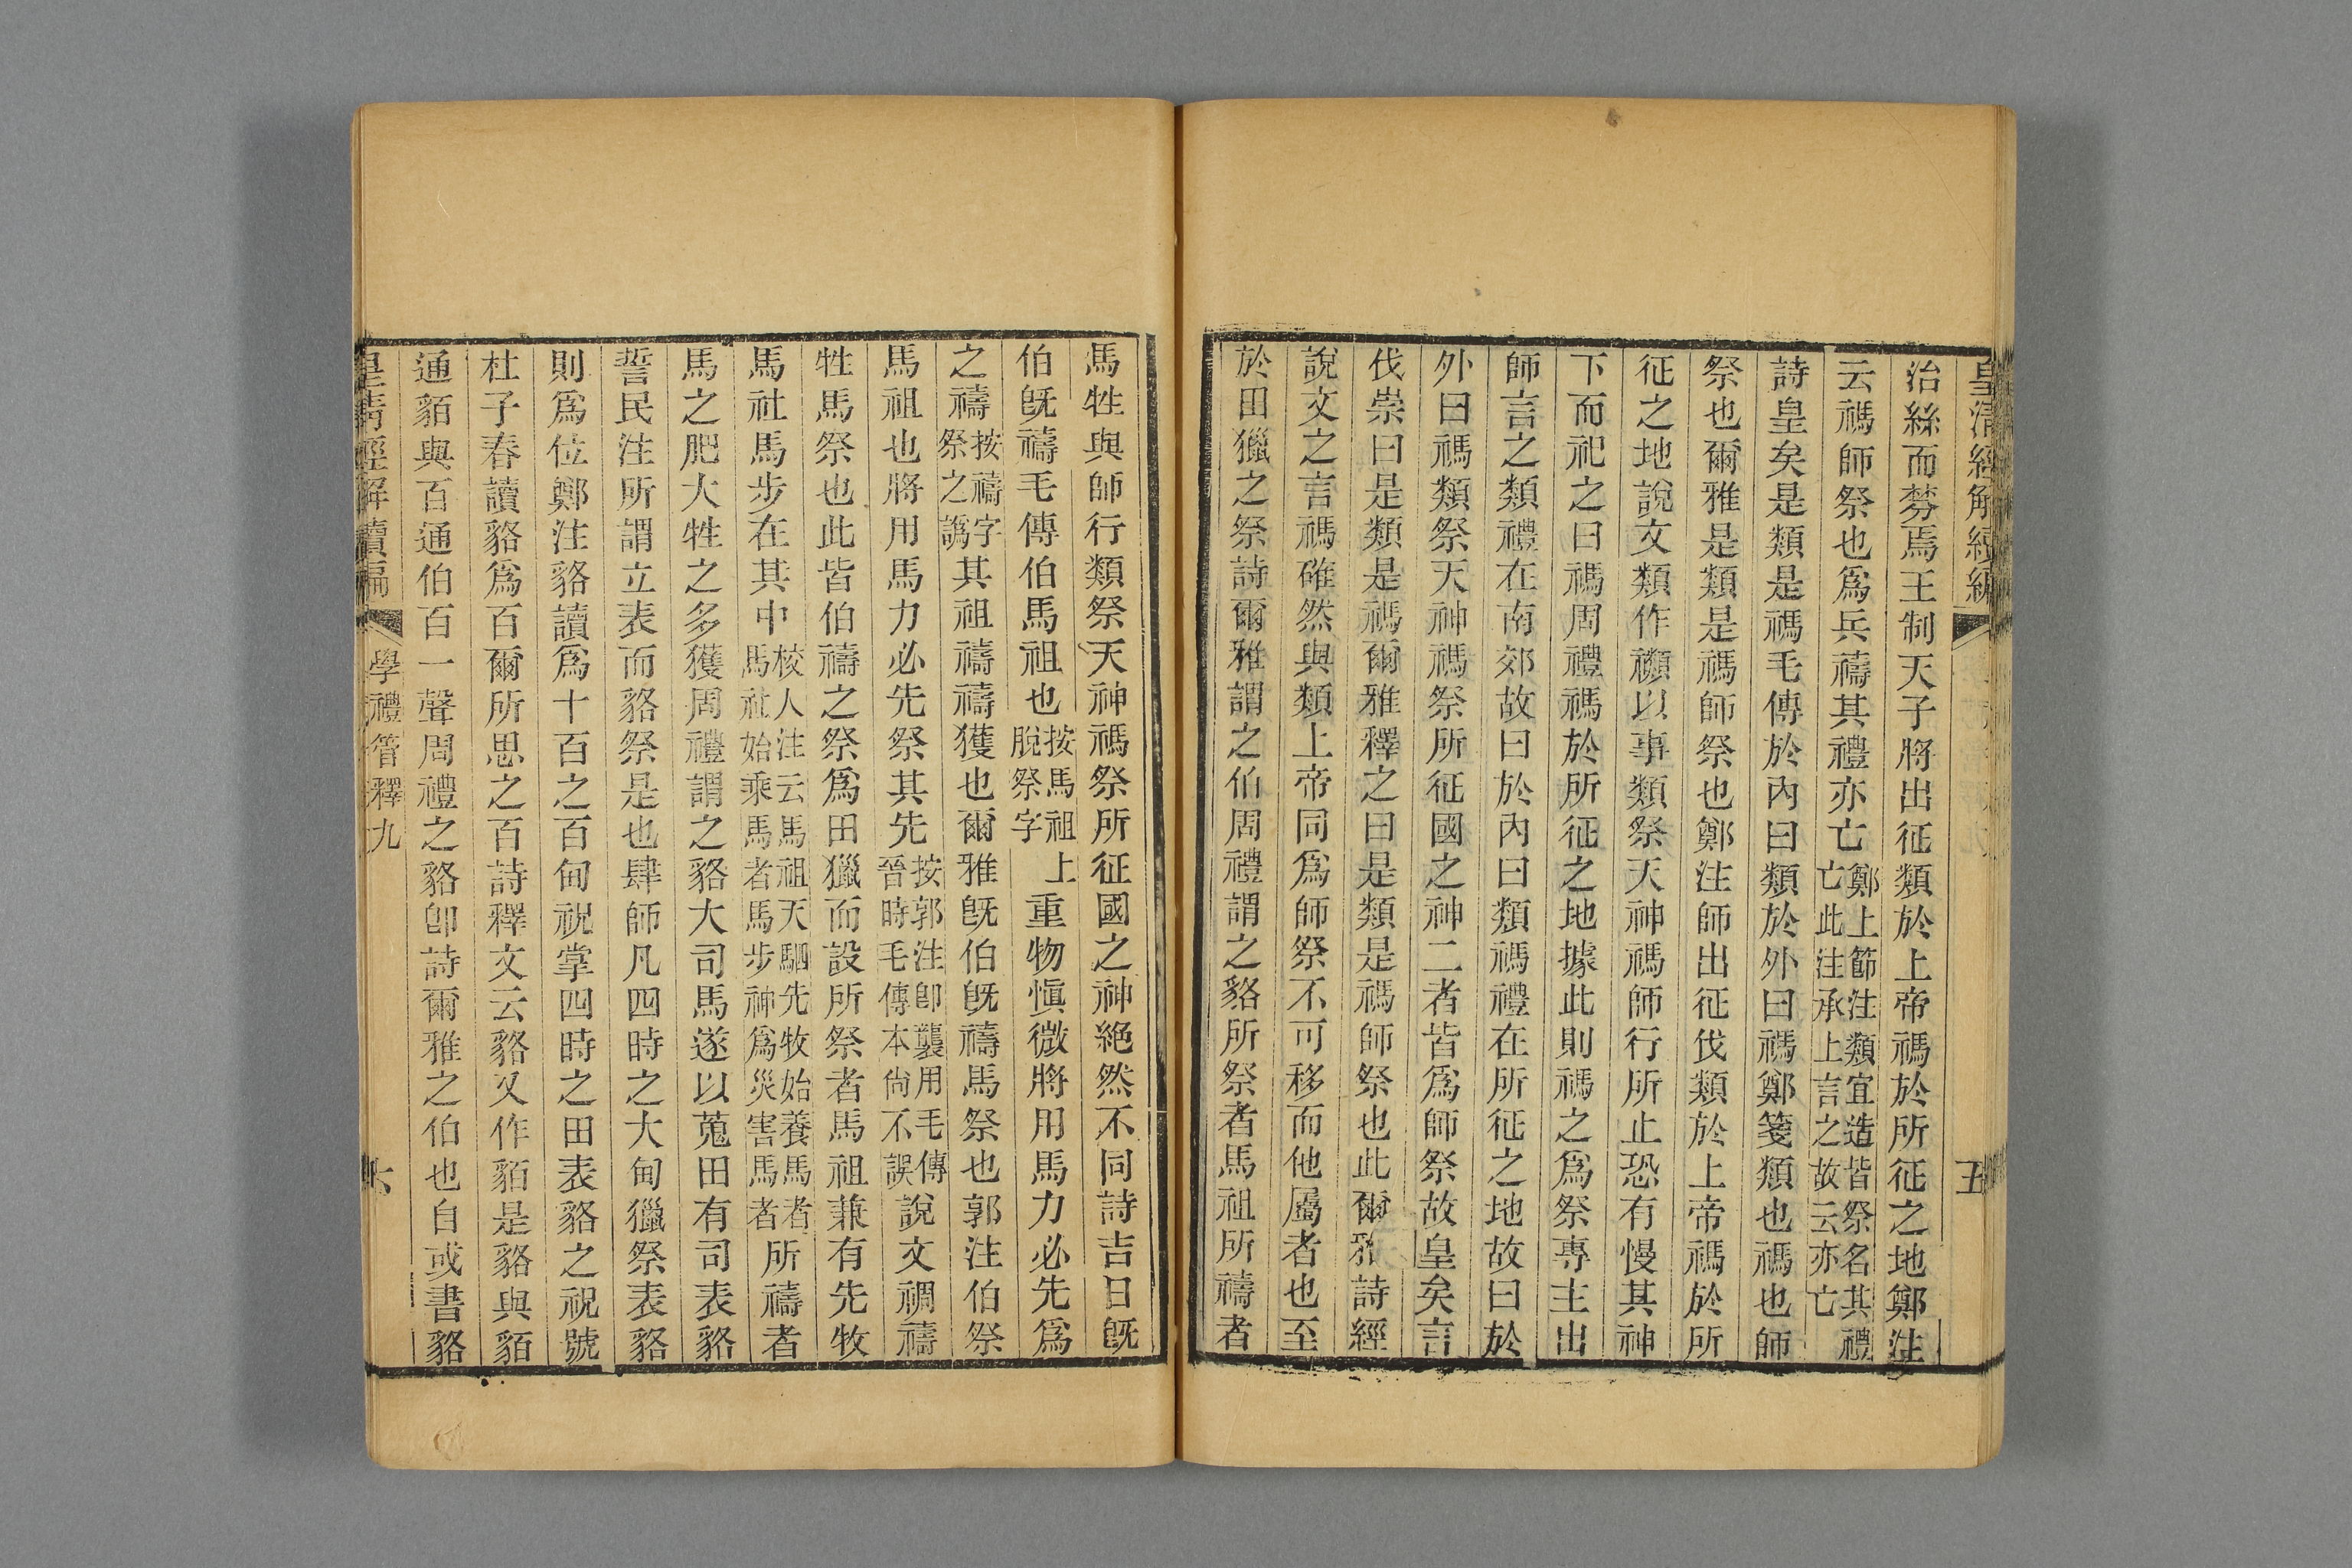 皇清經解續編
五
治絲而棼焉王制天子將出征類於上帝禡於所征之地鄭注
云禡師祭也爲兵禱其禮亦亡鄭上節注類宜造皆祭名其禮亡此注承上言之故云亦亡
詩皇矣是類是禡毛傳於內曰類於外曰禡鄭箋類也禡也師
祭也爾雅是類是禡師祭也鄭注師出征伐類於上帝禡於所
征之地說文類作禷以事類祭天神禡師行所止恐有慢其神
下而祀之曰禡周禮禡於所征之地據此則禡之爲祭專主出
師言之類禮在南郊故曰於內曰類禡禮在所征之地故曰於
外曰禡類祭天神禡祭所征國之神二者皆爲師祭故皇矣言
伐崇曰是類是禡爾雅釋之曰是類是禡師祭也此爾雅詩經
說文之言禡確然與類上帝同爲師祭不可移而他屬者也至
於田獵之祭詩爾雅謂之伯周禮謂之貉所祭者馬祖所禱者
馬牲與師行類祭天神禡祭所征國之神絶然不同詩吉日既
伯既禱毛傳伯馬祖也按馬祖上脫祭字重物愼微將用馬力必先爲
之禱按禱字祭之譌其祖禱禱獲也爾雅既伯既禱馬祭也郭注伯祭
馬祖也將用馬力必先祭其先按郭注卽襲用毛傳晉時毛傳本尙不誤說文禂禱
牲馬祭也此皆伯禱之祭爲田獵而設所祭者馬祖兼有先牧
馬社馬步在其中校人注云馬祖天駟先牧始養馬者馬社始乘馬者馬步神爲災害馬者所禱者
馬之肥大牲之多獲周禮謂之貉大司馬遂以蒐田有司表貉
誓民注所謂立表而貉祭是也肆師凡四時之大甸獵祭表貉
則爲位鄭注貉讀爲十百之百甸祝掌四時之田表貉之祝號
杜子春讀貉爲百爾所思之百詩釋文云貉又作貊是貉與貊
通貊與百通伯百一聲周禮之貉卽詩爾雅之伯也自或書貉
皇清經解續編
學禮管釋九
六